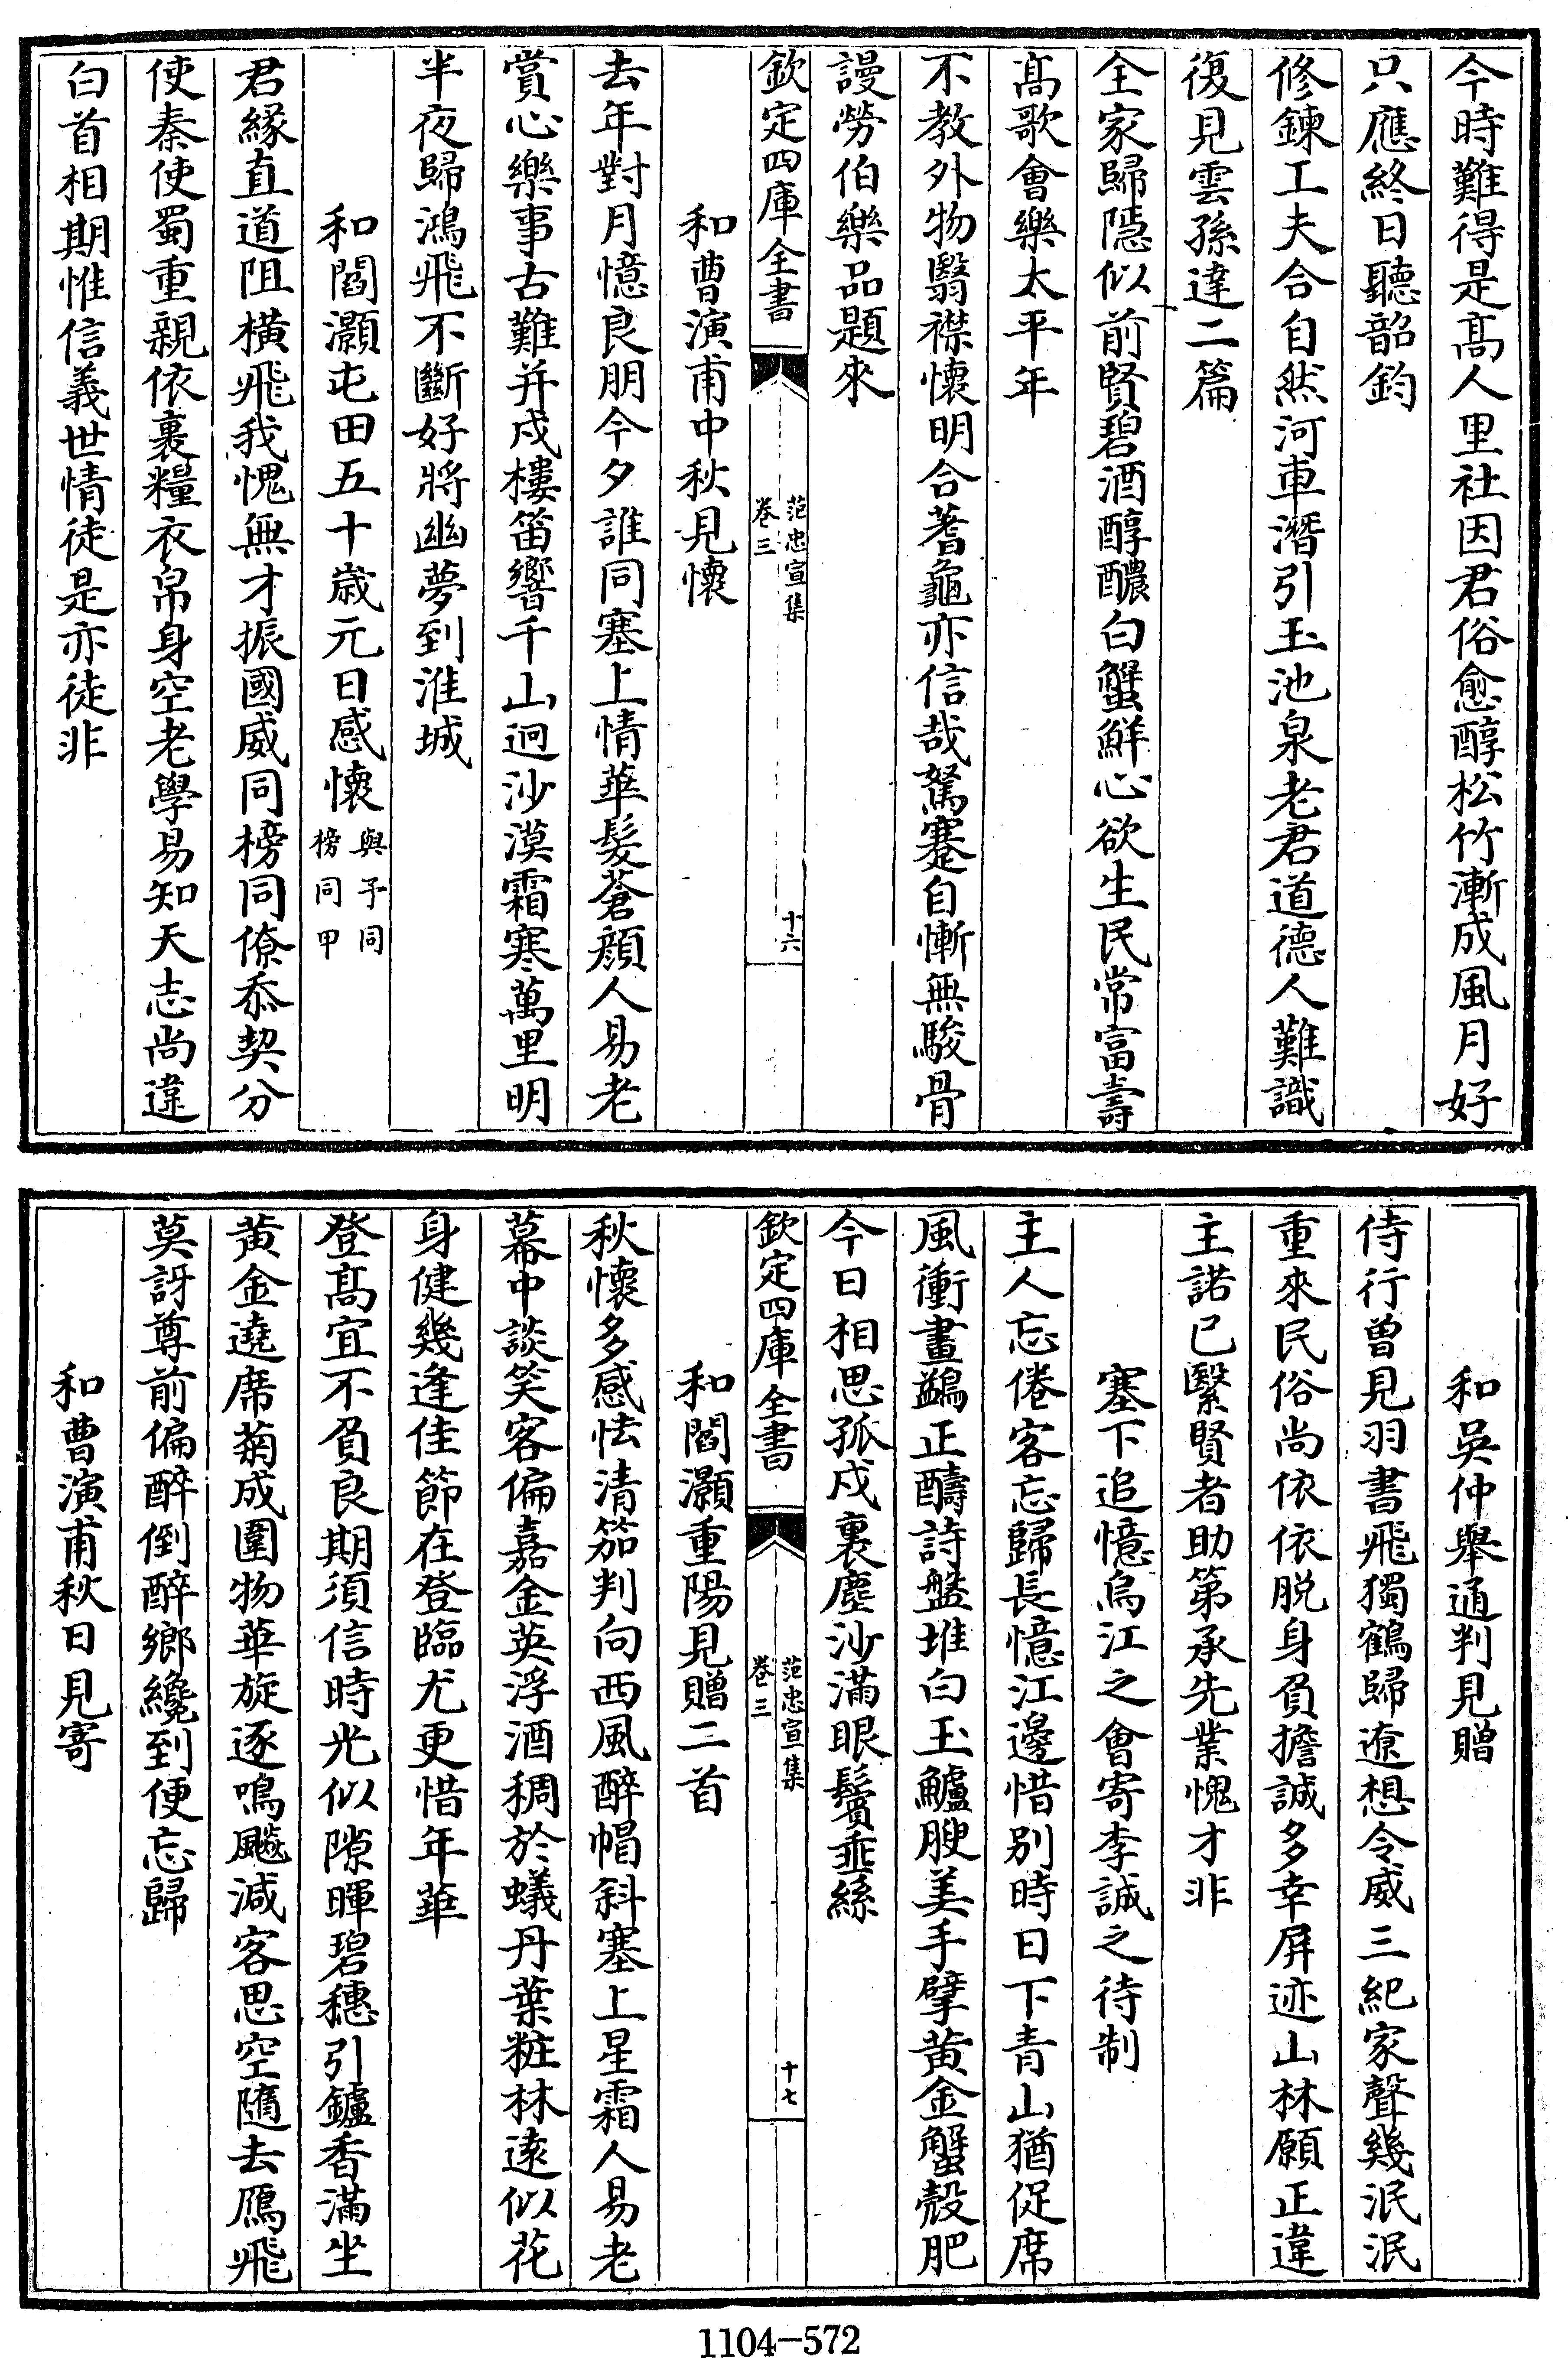 今時難得是髙人里社因君俗愈醇松竹漸成風月好
只應終日聽韶鈞
修鍊工夫合自然河車潛引玉池泉老君道德人難識
復見雲孫達二篇
全家歸隠似前賢碧酒醇醲白蟹鮮心欲生民常富壽
髙歌會樂太平年
不教外物翳襟懷明合蓍龜亦信哉駑蹇自慚無駿骨
謾勞伯樂品題來
欽定四庫全書
范忠宣集
卷三
十六
和曹演甫中秋見懷
去年對月憶良朋今夕誰同塞上情華髪蒼顔人易老
賞心樂事古難并戍樓笛響千山迥沙漠霜寒萬里明
半夜歸鴻飛不斷好將幽夢到淮城
和閻灝屯田五十歳元日感懷與予同
榜同甲
君緣直道阻横飛我愧無才振國威同榜同僚忝契分
使秦使蜀重親依裹糧衣帛身空老學易知天志尚違
白首相期惟信義世情徒是亦徒非
和吳仲舉通判見贈
侍行曽見羽書飛獨鶴歸遼想令威三紀家聲幾泯泯
重來民俗尚依依脱身負擔誠多幸屏迹山林願正違
主諾已繄賢者助第承先業愧才非
塞下追憶烏江之會寄李誠之待制
主人忘倦客忘歸長憶江邊惜别時日下青山猶促席
風衝畫鷁正醻詩盤堆白玉鱸腴美手擘黄金蟹殻肥
今日相思孤戍裏塵沙滿眼鬢垂絲
欽定四庫全書
范忠宣集
卷三
十七
和閻灝重陽見贈二首
秋懷多感怯清笳判向西風醉帽斜塞上星霜人易老
幕中談笑客偏嘉金英浮酒稠於蟻丹葉粧林逺似花
身健幾逢佳節在登臨尤更惜年華
登髙宜不負良期須信時光似隙暉碧穗引鑪香滿坐
黄金遶席菊成圍物華旋逐鳴飈減客思空隨去鴈飛
莫訝尊前偏醉倒醉鄉纔到便忘歸
和曹演甫秋日見寄
1104-572